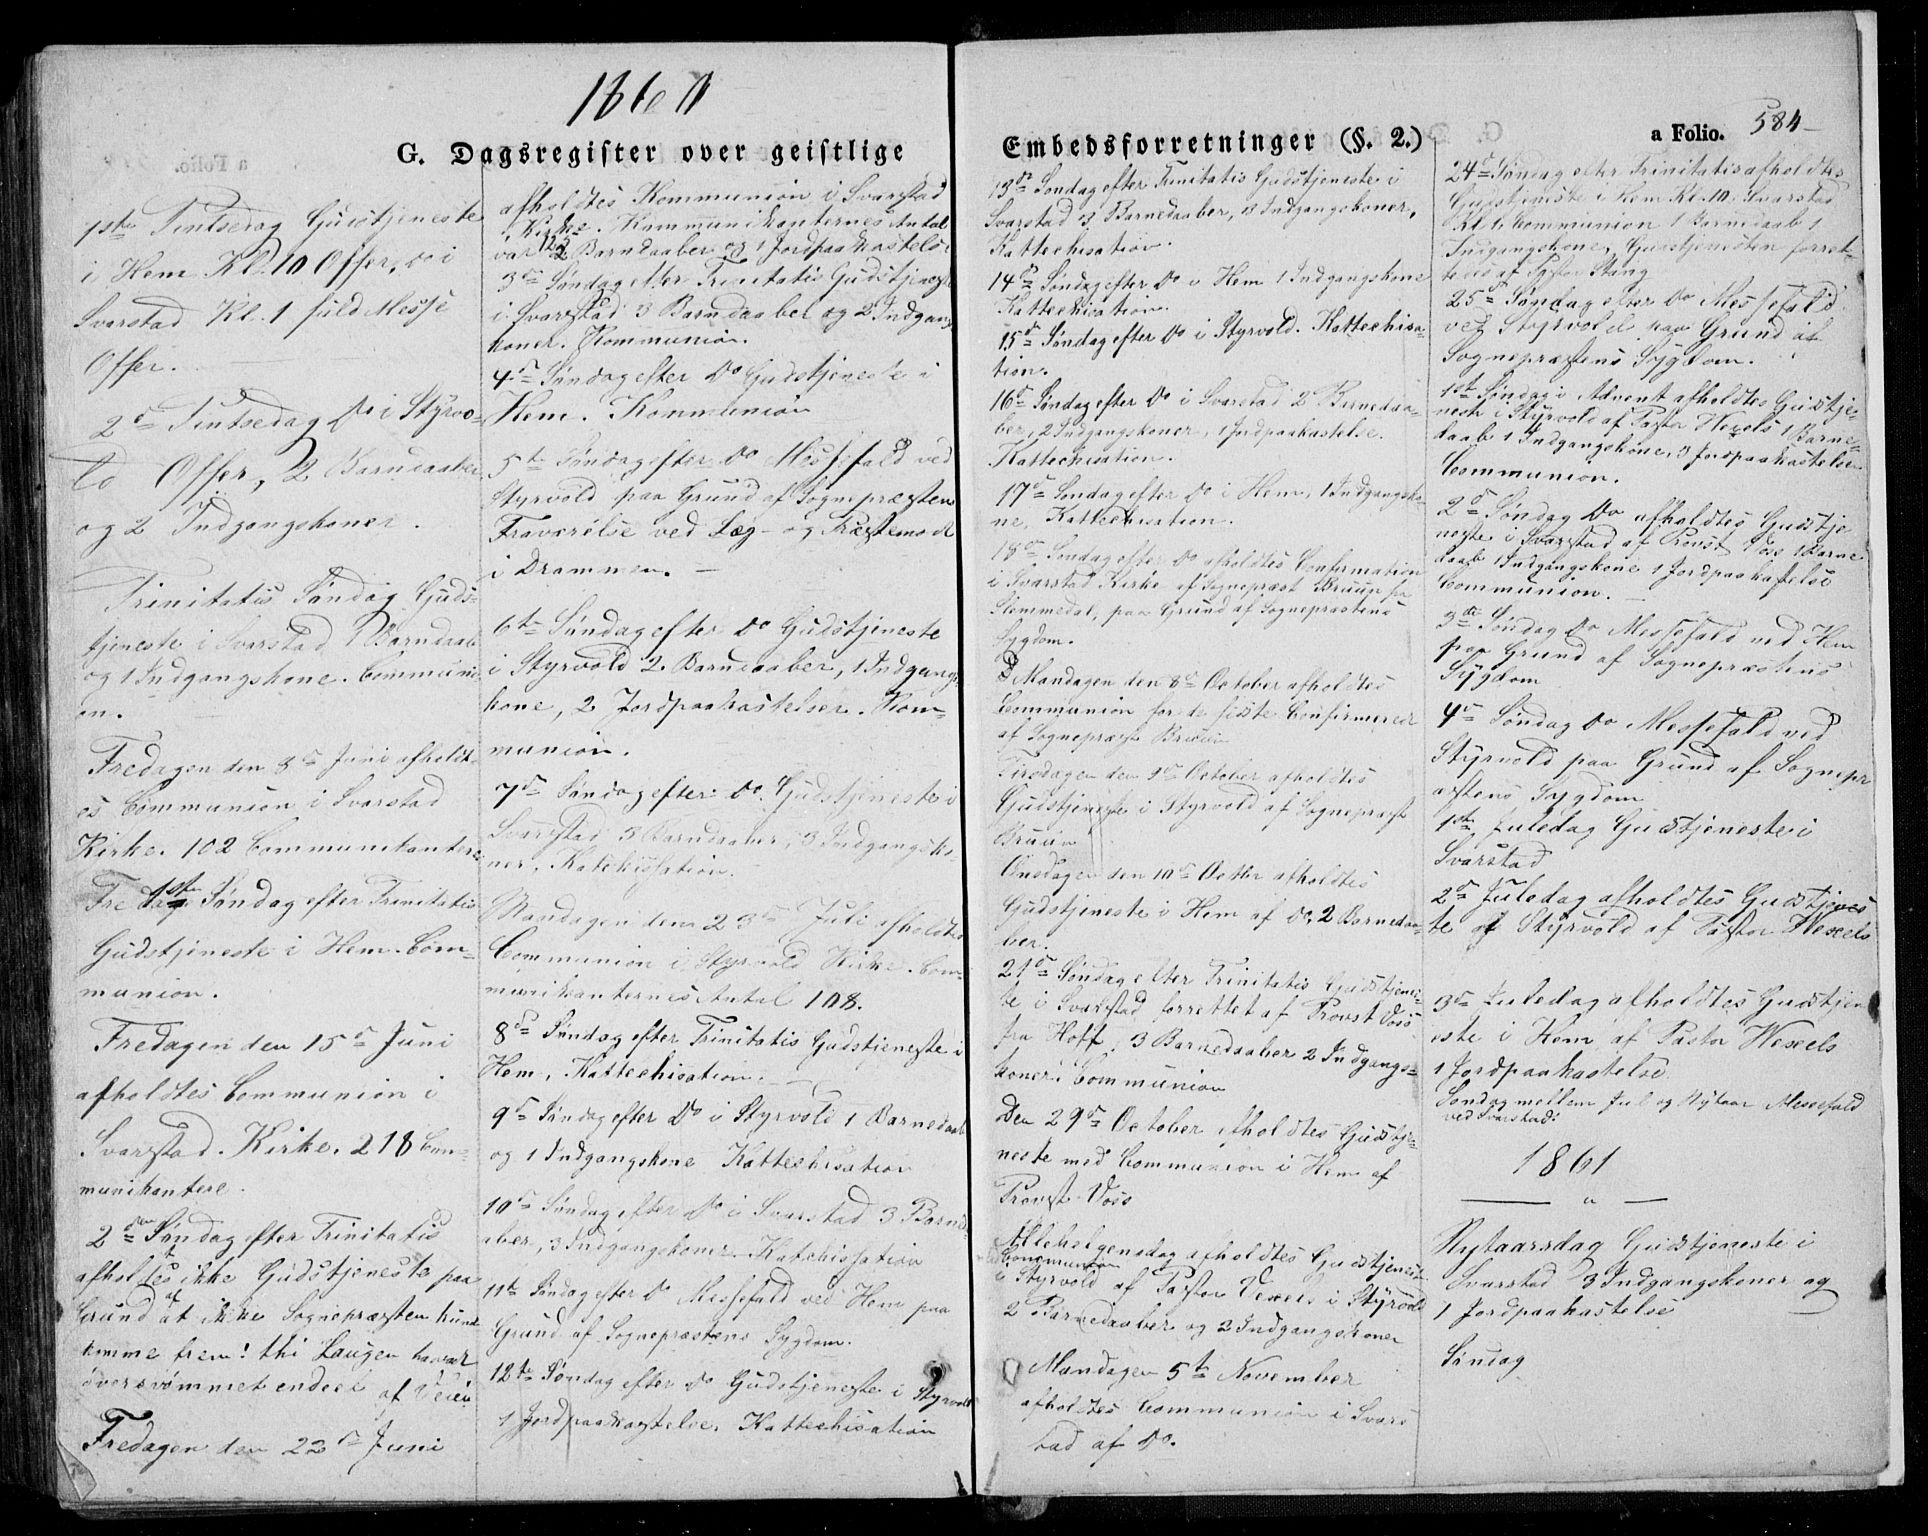 1860
G. Dagsregister over geistlige
1ste Pintsedag Gudstjeneste
i Hem Kl. 10 Offer, do i
Svarstad Kl. 1 fuld Messe
Offer.
2d Pintsedag do i Styrvo-
ld Offer, 2 Barndaaber
og 2 Indgangskoner.
Trinitatis Søndag Guds-
tjeneste i Svarstad 1 Barndaab
og 1 Indgangskone. Communi-
on.
Fredagen den 8de Juni afholdt-
es Communion i Svarstad
Kirke. 102 Communikantere
1ste Søndag efter Trinitatis
Gudstjeneste i Hem. Com-
munion.
Fredagen den 15de Juni
afholdtes Communion i
Svarstad Kirke. 218 Com-
munikantere.
2den Søndag efter Trinitatis
afholdtes ikke Gudstjeneste paa
Grund af at ikke Sognepræsten kunde
komme frem! thi Laugen havde
oversvømmet endeel af Veien
Fredagen den 22de Juni
afholdtes Kommunion i Svarstad
Kirke. Kommunikanternes Antal
var 122 Barndaaber og 1 Jordpaakastelse
3de Søndag efter Trinitatis Gudstjeneste
i Svarstad 3 Barndaaber og 2 Indgangs
koner. Kommunion.
4de Søndag efter do Gudstjeneste i
Hem. Kommunion
5te Søndag efter do Messefald ved
Styrvold paa Grund af Sognepræstens
Fraværelse ved Læg- og Præstemøde
i Drammen. –
6te Søndag efter do Gudstjeneste
i Styrvold 2 Barndaaber, 1 Indgangs-
kone, 2 Jordpaakastelser. Kom-
munion.
7de Søndag efter do Gudstjeneste i
Svarstad 3 Barndaaber, 3 Indgangsko-
ner, Katekisation.
Mandagen den 23de Juli afholdtes
Communion i Styrvold Kirke. Com-
munikanternes Antal 108.
8de Søndag efter Trinitatis Gudstjeneste i
Hem, Kattechisation.
9de Søndag efter do i Styrvold 1 Barnedaab
og 1 Indgangskone Kattechisation
10de Søndag efter do i Svarstad 3 Barnd-
aaber, 3 Indgangskoner Katechisation
11te Søndag efter do Messefald ved Hem paa
Grund af Sognepræstens Sygdom.
12te Søndag efter do Gudstjeneste i Styrvold
1 Jordpaakastelse. Kattechisation
Embedsforretninger (§. 2.)
a Folio. 584
13de Søndag efter Trinitatis Gudstjeneste i
Svarstad 3 Barnedaaber, 3 Indgangskoner,
Kattechisation.
14de Søndag efter do i Hem 1 Indgangskone
Kattechisation.
15de Søndag efter do i Styrvold. Kattechisa-
tion.
16de Søndag efter do i Svarstad 2 Barnedaa-
ber, 2 Indgangskoner, 1 Jordpaakastelse.
Kattechisation.
17de Søndag efter do i Hem, 1 Indgangsko-
ne, Kattechisation.
18de Søndag efter do afholdtes Confirmation
i Svarstad Kirke af Sognepræst Bruun fra
Slemmedal, paa Grund af Sognepræstens
Sygdom.
Mandagen den 8de October afholdtes
Communion for de sidste Confirmerede
af Sognepræst Bruun
Tirsdagen den 9de October afholdtes
Gudstjeneste i Styrvold af Sognepræst
Bruun
Onsdagen den 10de Octbr afholdtes
Gudstjeneste i Hem af do, 2 Barnedaa-
ber.
21de Søndag efter Trinitatis Gudstjenes-
te i Svarstad forrettet af Provst Voss
fra Hoff, 3 Barnedaaber 2 Indgangs-
koner. Communion
Den 29de October afholdtes Gudstje-
neste med Communion i Hem af
Provst Voss
Allehelgensdag afholdtes Gudstjeneste
Communion
i Styrvold af Pastor Wexels i Styrvold
2 Barnedaaber og 2 Indgangskoner
Mandagen 5te November
afholdtes Communion i Svars
tad af do.
24de Søndag efter Trinitatis afholdtes
Gudstjeneste i Hem Kl. 10. Svarstad
Kl. 1. Communion 1 Barnedaab 1
Indgangskone, Gudstjenesten forret-
tedes af Pastor Stang
25de Søndag efter do Messefald
ved Styrvold paa Grund af
Sognepræstens Sygdom.
1ste Søndag i Advent afholdtes Gudstje-
neste i Styrvold af Pastor Wexels 1 Barne-
daab 1 Indgangskone, 3 Jordpaakastelser
Communion.
2de Søndag do afholdtes Gudstje
neste i Svarstad af Provst Voss 1 Barne
daab 1 Indgangskone 1 Jordpaakastelse
Communion. –
3die Søndag do Messefald ved Hem
paa Grund af Sognepræstens
Sygdom
4de Søndag do Messefald ved
Styrvold paa Grund af Sognepr
æstens Sygdom
1ste Juledag Gudstjeneste i
Svarstad
2de Juledag afholdtes Gudstjenes
te af Styrvold af Pastor Wexels
3de Juledag afholdtes Gudstjen
este i Hem af Pastor Wexels
1 Jordpaakastelse
Søndag mellem Jul og Nytaar Messefald
ved Svarstad.
1861
Nytaarsdag Gudstjeneste i
Svarstad 3 Indgangskoner og
1 Jordpaakastelse
Søndag